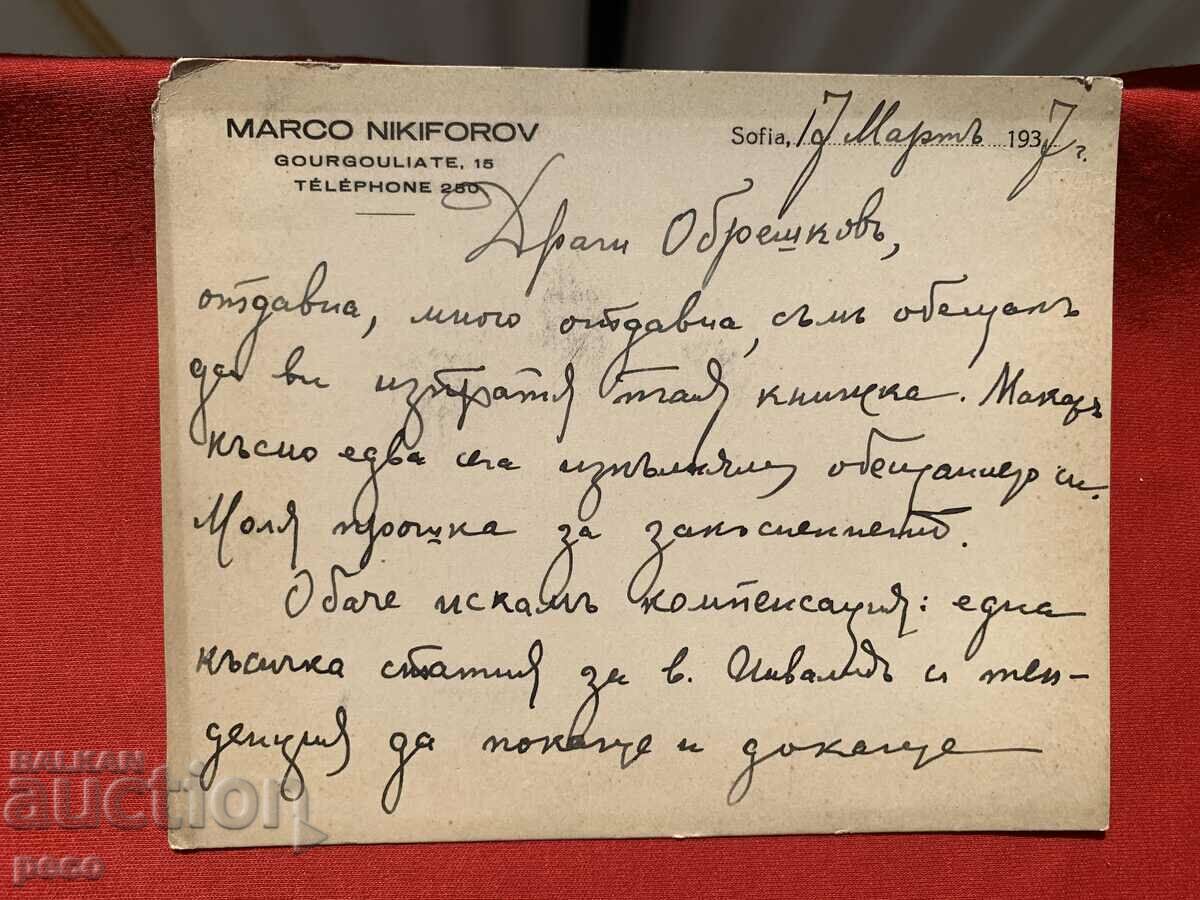 MARCO NIKIFOROV
GOURGOULIATE, 15
TÉLÉPHONE 250
Sofia, 17 Мартъ 1937 г.
Драги Обрешковъ,
отдавна, много отдавна, съмъ обещалъ
да ви изпратя тая книжка. Макаръ
късно едва сега изпълнямъ обещанието си.
Моля прошка за закъснението.
Обаче искамъ компенсация: една
късичка статия за в. Инвалидъ и тен-
денция да покаже и докаже
BALKAN
auction
peco